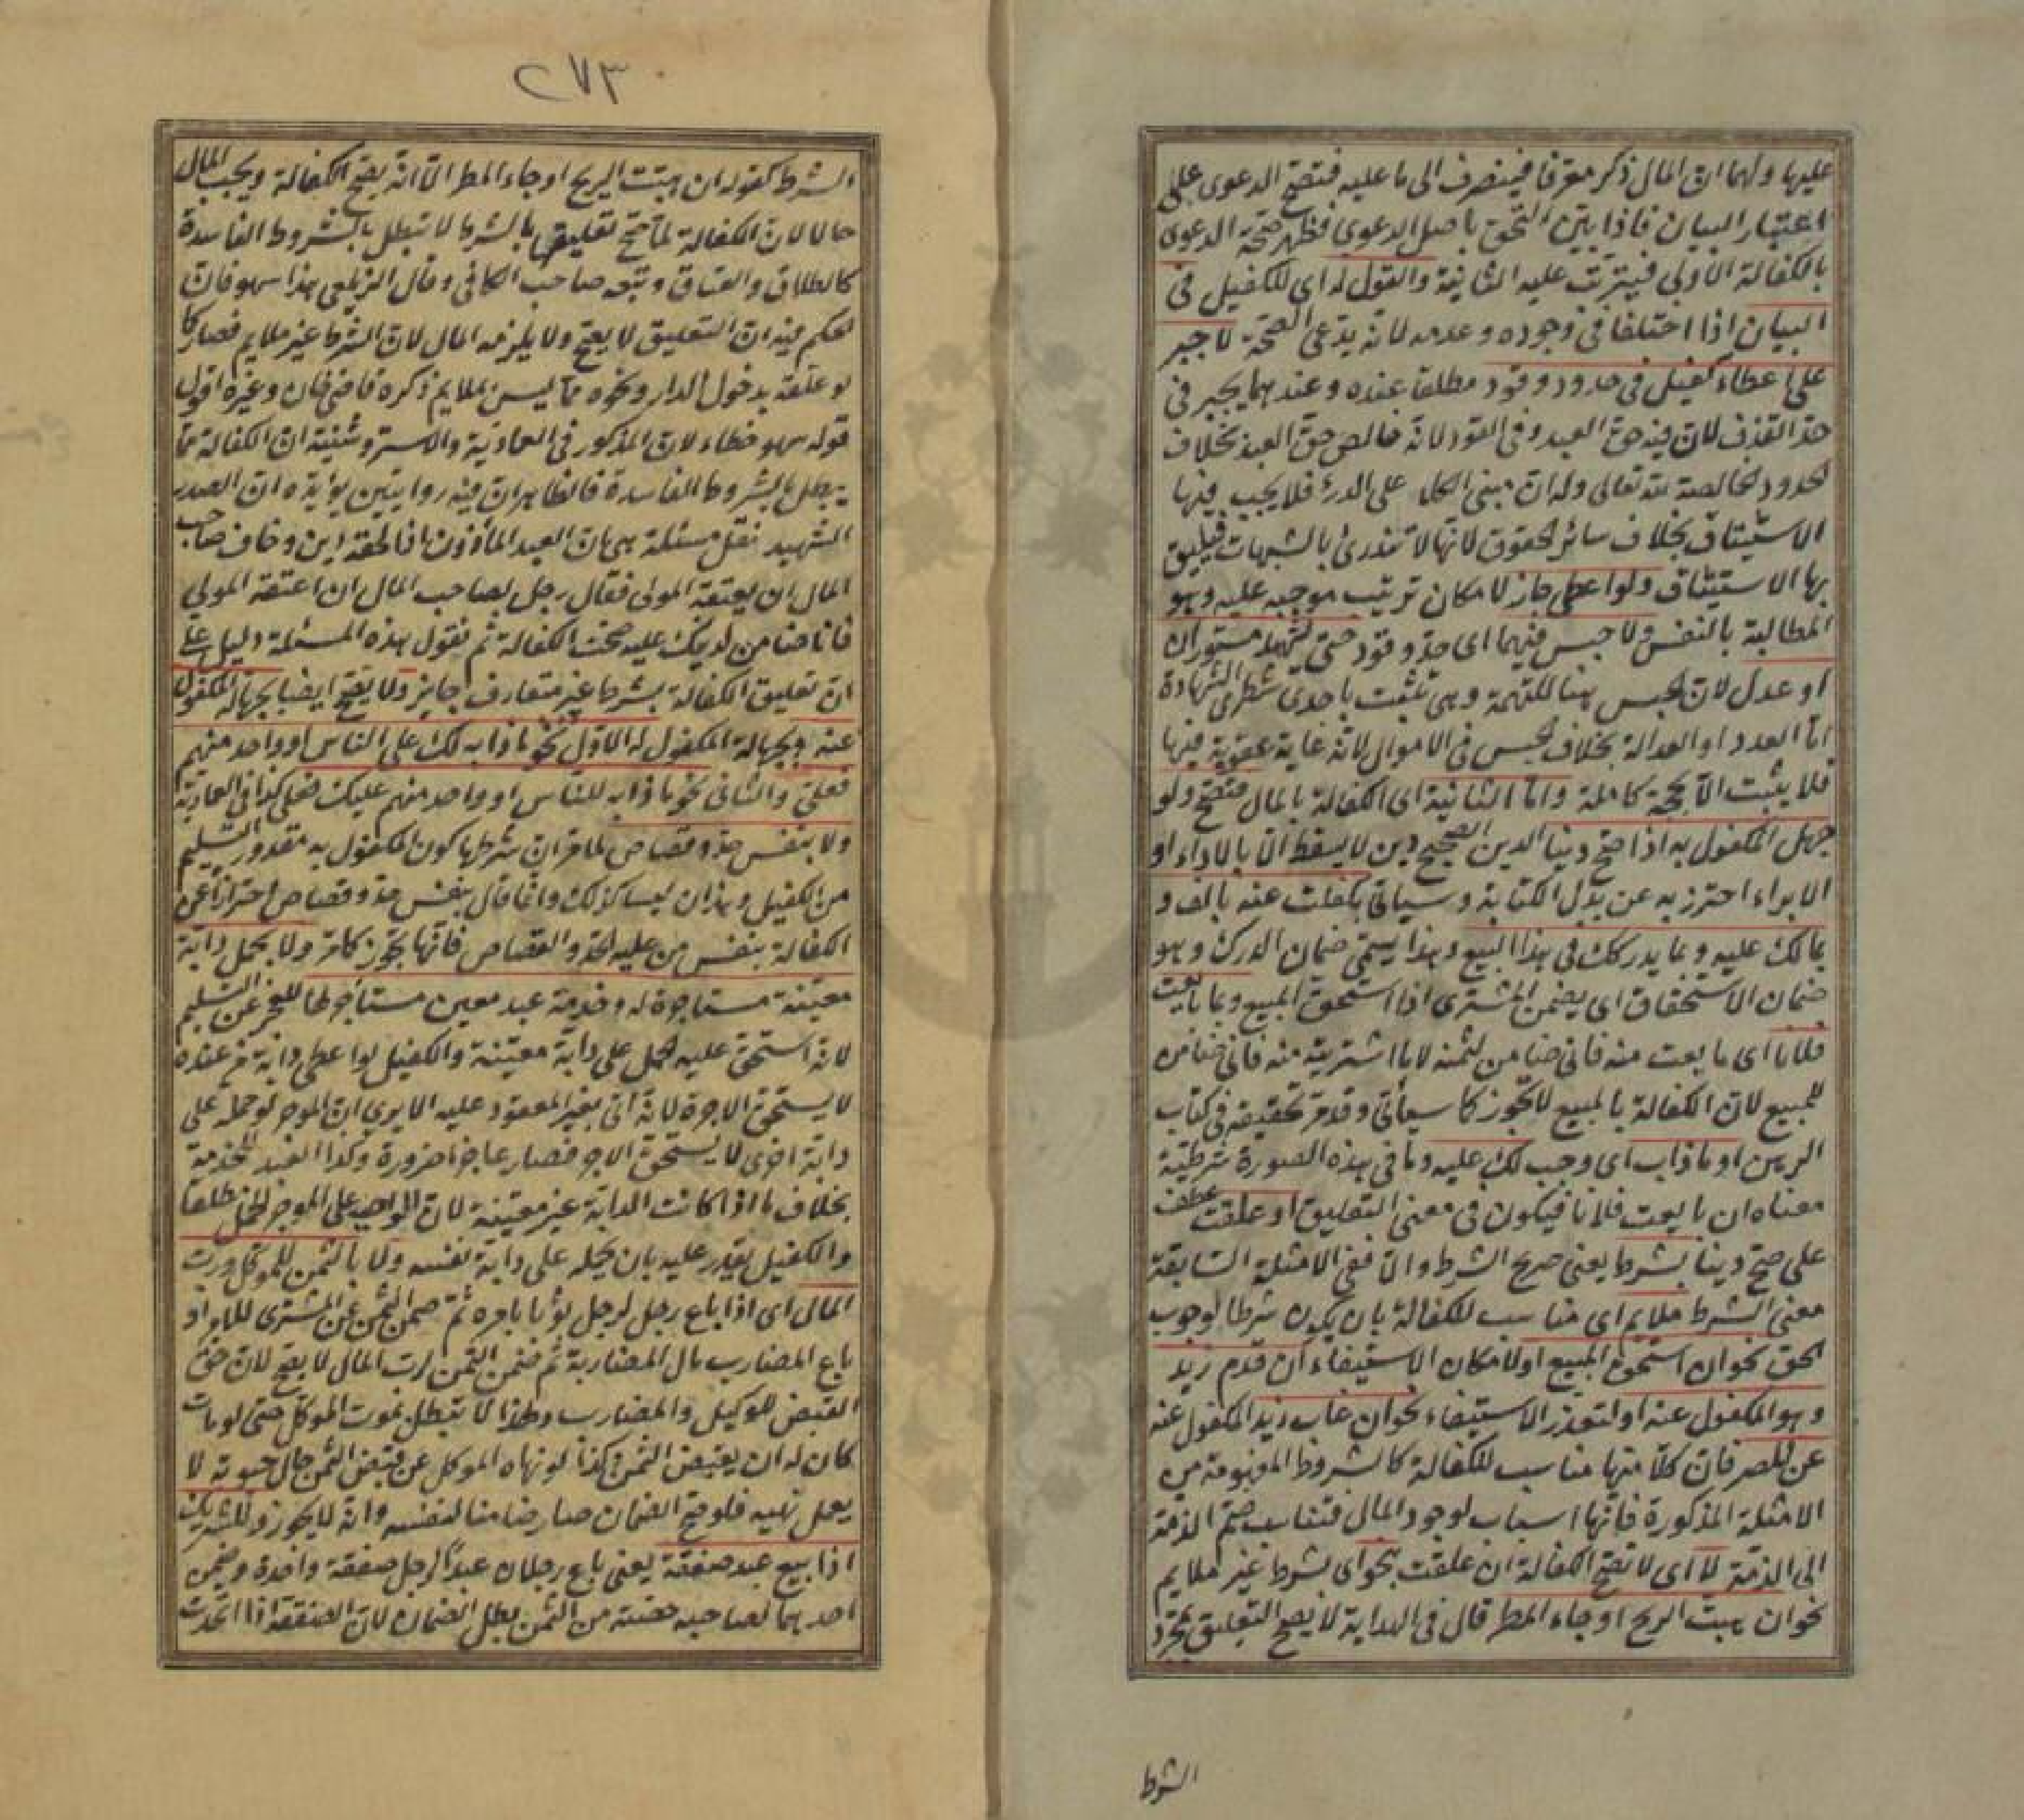 عليها ولهما ان المال ذكر معرفا فينصرف الى ما عليه فتصح الدعوى على
اعتبار البيان فاذا بين التحق باصل الدعوى فظهر صحة الدعوى
بالكفالة الاولى فيترتب عليه الثانية والقول له اى للكفيل فى
البيان اذا اختلفا فى وجوده وعدمه لانه يدعى الصحة لا جبر
على اعطاء كفيل فى حدود وقود مطلقا عنده وعندهما يجبر فى
حد القذف لان فيه حق العبد وفى القود لانه خالص حق العبد بخلاف
الحدود الخالصة لله تعالى وله ان مبنى الكل على الدرئ فلا يجب فيها
الاستيثاق بخلاف سائر الحقوق لانها لا تندرئ بالشبهات فيليق
بها الاستيثاق ولو اعطى جاز لامكان ترتيب موجبه عليه وهو
المطالبة بالنفس ولا حبس فيهما اى حد وقود حتى يشهد مستوران
او عدل لان الحبس هنا للتهمة وهى تثبت باحدى شطرى الشهادة
اما العدد او العدالة بخلاف الحبس فى الاموال لانه غاية عقوبة فيها
فلا يثبت الا بحجة كاملة واما الثانية اى الكفالة بالمال فتصح ولو
جهل المكفول به اذا صح دينا الدين الصحيح دين لا يسقط الا بالاداء او
الابراء احترز به عن بدل الكتابة وسيأتى بكفلت عنه بالف و
بمالك عليه وبما يدركك فى هذا البيع وهذا يسمى ضمان الدرك وهو
ضمان الاستحقاق اى يضمن المشترى اذا استحق المبيع وبما بايعت
فلانا اى ما بعت منه فانى ضامن لثمنه لا ما اشتريته منه فانى ضامن
للمبيع لان الكفالة بالمبيع لا تجوز كما سيأتى وقد مر تحقيقه فى كتاب
الرهن او ما ذاب اى وجب لك عليه وما فى هذه الصورة شرطية
معناه ان بايعت فلانا فيكون فى معنى التعليق او علقت عطف
على صح دينا بشرط يعنى صريح الشرط والا ففى الامثلة السابقة
معنى الشرط ملايم اى مناسب للكفالة بان يكون شرطا لوجوب
الحق نحو ان استحق المبيع او لامكان الاستيفاء ان قدم زيد
وهو المكفول عنه او لتعذر الاستيفاء نحو ان غاب زيد المكفول عنه
عن المصر فان كلا منها مناسب للكفالة كالشروط المفهومة من
الامثلة المذكورة فانها اسباب لوجود المال فتناسب ضم الذمة
الى الذمة لا اى لا تصح الكفالة ان علقت بنحو اى بشرط غير ملايم
نحو ان هبت الريح او جاء المطر قال فى الهداية لا يصح التعليق بمجرد
الشرط
٢٧٣
الشرط كقوله ان هبت الريح او جاء المطر الا انه يصح الكفالة ويجب المال
حالا لان الكفالة لما صح تعليقها بالشرط لا تبطل بالشروط الفاسدة
كالطلاق والعتاق وتبعه صاحب الكافى وقال الزيلعى هذا سهو فان
الحكم فيه ان التعليق لا يصح ولا يلزمه المال لان الشرط غير ملايم فصار كما
لو علقه بدخول الدار ونحوه مما ليس بملايم ذكره قاضى خان وغيره اقول
قوله سهو خطاء لان المذكور فى العمادية والاستروشنية ان الكفالة مما
يبطل بالشروط الفاسدة فالظاهر ان فيه روايتين يؤيده ان الصدر
الشهيد نقل مسئلة هى ان العبد المأذون اذا لحقه دين وخاف صاحب
المال ان يعتقه المولى فقال رجل لصاحب المال ان اعتقه المولى
فانا ضامن لدينك عليه صحت الكفالة ثم نقول هذه المسئلة دليل على
ان تعليق الكفالة بشرط غير متعارف جايز ولا يصح ايضا بجهالة المكفول
عنه وبجهالة المكفول له الاول نحو ما ذاب لك على الناس او واحد منهم
فعلى والثانى نحو ما ذاب للناس او واحد منهم عليك فعلى كذا فى العمادية
ولا بنفس حد وقصاص لما مر ان شرطها كون المكفول به مقدور التسليم
من الكفيل وهذان ليسا كذلك وانما قال بنفس حد وقصاص احترازا عن
الكفالة بنفس من عليه الحد والقصاص فانها تجوز كما مر ولا بحمل دابة
معينة مستاجرة له وخدمة عبد معين مستأجر لها للعجز عن التسليم
لانه استحق عليه الحمل على دابة معينة والكفيل لو اعطى دابة من عنده
لا يستحق الاجرة لانه اتى بغير المعقود عليه الا يرى ان الموجر لو حمله على
دابة اخرى لا يستحق الاجر فصار عاجزا ضرورة وكذا العبد للخدمة
بخلاف ما اذا كانت الدابة غير معينة لان الواجب على الموجر الحمل مطلقا
والكفيل يقدر عليه بان يحمله على دابة نفسه ولا بالثمن للموكل ورب
المال اى اذا باع رجل لرجل ثوبا بامره ثم ضمن الثمن عن المشترى للآمر او
باع المضارب مال المضاربة ثم ضمن الثمن لرب المال لا يصح لان حق
القبض للوكيل والمضارب ولهذا لا تبطل بموت الموكل حتى لو مات
كان له ان يقبض الثمن وكذا لو نهاه الموكل عن قبض الثمن حال حيوته لا
يعمل نهيه فلو صح الضمان صار ضامنا لنفسه وانه لا يجوز وللشريك
اذا بيع عبد صفقة يعنى باع رجلان عبدا لرجل صفقة واحدة وضمن
احدهما لصاحبه حصته من الثمن بطل الضمان لان الصفقة اذا اتحدت